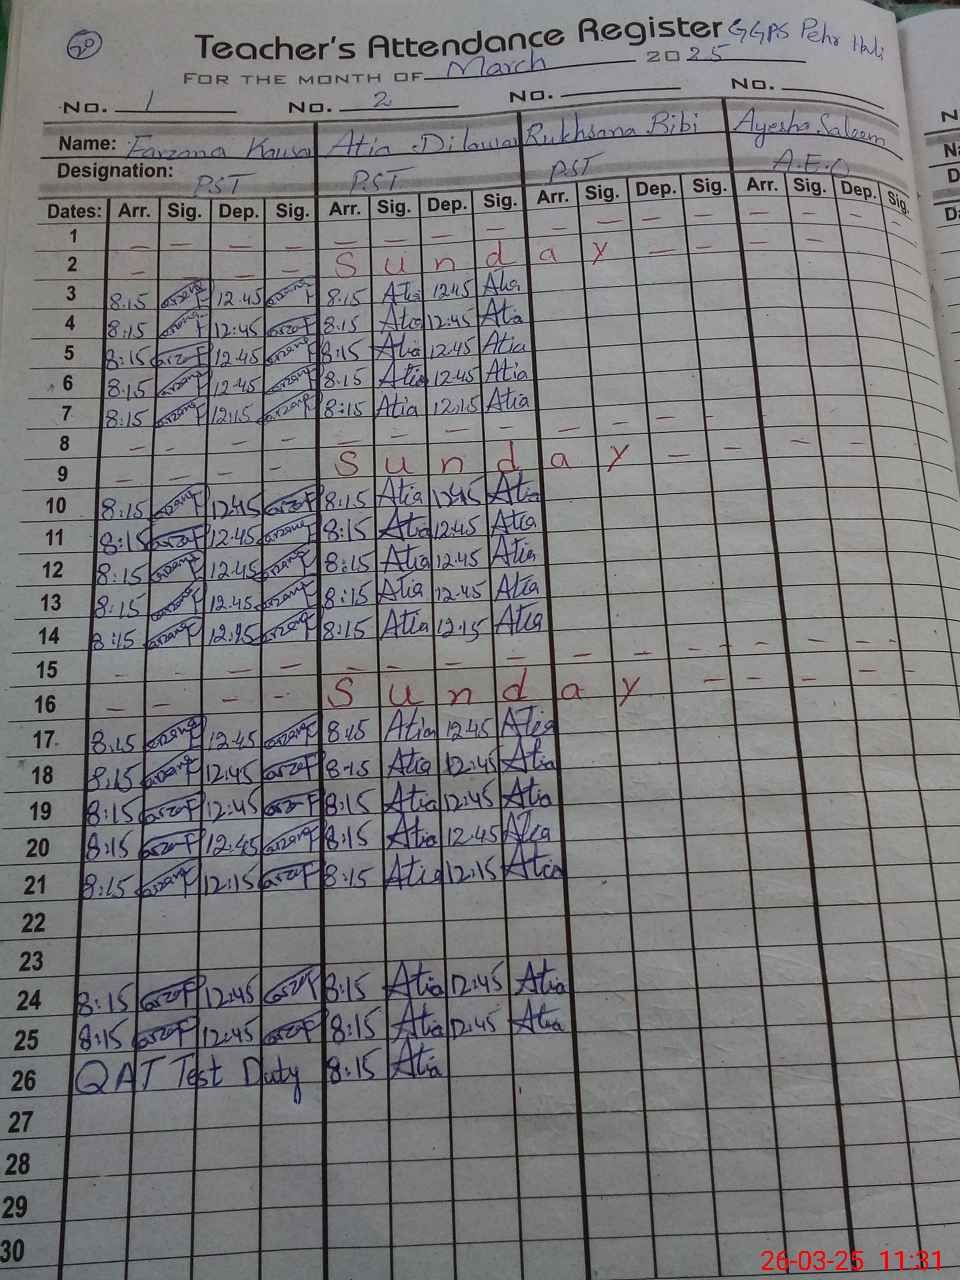 20
Teacher's Attendance Register GGPS Pehr
FOR THE MONTH OF March 2025
No. 1 No. 2 No. No.
Name: Farzana Kausar Atia Dilawar Rukhsana Bibi Ayesha Saleem
Designation: PST PST PST A.E.O
Dates: Arr. Sig. Dep. Sig. Arr. Sig. Dep. Sig. Arr. Sig. Dep. Sig. Arr. Sig. Dep. Sig.
1 — — — — — — — — — — — — — — —
2 — — — — S u n d a y — — — —
3 8:15 12.45 8:15 Atia 12.45 Atia
4 8:15 12:45 8:15 Atia 12:45 Atia
5 8:15 12.45 8:15 Atia 12.45 Atia
6 8:15 12.45 8.15 Atia 12.45 Atia
7 8:15 12:15 8:15 Atia 12:15 Atia
8 — — — — — — — — — — — — — — —
9 — — — — S u n d a y — — — —
10 8:15 12:45 8:15 Atia 12:45 Atia
11 8:15 12.45 8:15 Atia 12:45 Atia
12 8:15 12.45 8:15 Atia 12.45 Atia
13 8:15 12.45 8:15 Atia 12.45 Atia
14 8:15 12:15 8:15 Atia 12:15 Atia
15 — — — — — — — — — — — — — — —
16 — — — — S u n d a y — — — —
17 8:15 12.45 8:15 Atia 12.45 Atia
18 8:15 12:45 8:15 Atia 12:45 Atia
19 8:15 12:45 8:15 Atia 12:45 Atia
20 8:15 12:45 8:15 Atia 12.45 Atia
21 8:15 12:15 8:15 Atia 12:15 Atia
22
23
24 8:15 12:45 8:15 Atia 12:45 Atia
25 8:15 12:45 8:15 Atia 12:45 Atia
26 QAT Test Duty 8:15 Atia
27
28
29
30
26-03-25 11:31